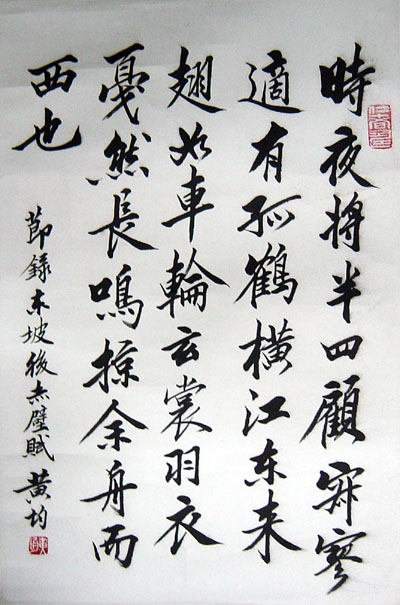 時夜将半四顧寂寥
適有孤鶴横江东来
翅如車輪玄裳羽衣
戛然長鳴掠余舟而
西也
節録东坡後赤壁賦 黄均